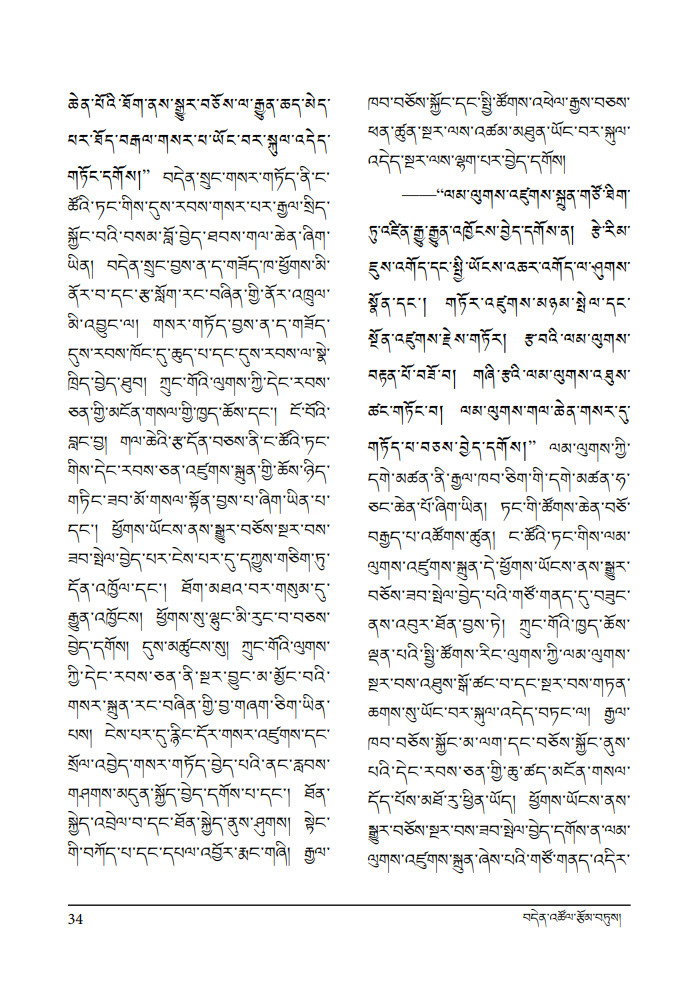 ཆེན་པོའི་ཐོག་ནས་སྒྱུར་བཅོས་ལ་རྒྱུན་ཆད་མེད་
པར་ཐོད་བརྒལ་གསར་པ་ཡོང་བར་སྐུལ་འདེད་
གཏོང་དགོས།” བདེན་སྲུང་གསར་གཏོད་ནི་ང་
ཚོའི་ཏང་གིས་དུས་རབས་གསར་པར་རྒྱལ་སྲིད་
སྐྱོང་བའི་བསམ་བློ་བྱེད་ཐབས་གལ་ཆེན་ཞིག་
ཡིན། བདེན་སྲུང་བྱས་ན་ད་གཟོད་ཁ་ཕྱོགས་མི་
ནོར་བ་དང་རྩ་སློག་རང་བཞིན་གྱི་ནོར་འཁྲུལ་
མི་འབྱུང་ལ། གསར་གཏོད་བྱས་ན་ད་གཟོད་
དུས་རབས་ཁོང་དུ་ཆུད་པ་དང་དུས་རབས་ལ་སྣེ་
ཁྲིད་བྱེད་ཐུབ། ཀྲུང་གོའི་ལུགས་ཀྱི་དེང་རབས་
ཅན་གྱི་མངོན་གསལ་གྱི་ཁྱད་ཆོས་དང་། ངོ་བོའི་
བླང་བྱ། གལ་ཆེའི་རྩ་དོན་བཅས་ནི་ང་ཚོའི་ཏང་
གིས་དེང་རབས་ཅན་འཛུགས་སྐྲུན་གྱི་ཆོས་ཉིད་
གཏིང་ཟབ་མོ་གསལ་སྟོན་བྱས་པ་ཞིག་ཡིན་པ་
དང་། ཕྱོགས་ཡོངས་ནས་སྒྱུར་བཅོས་སྔར་བས་
ཟབ་སྤེལ་བྱེད་པར་ངེས་པར་དུ་དཀྱུས་གཅིག་ཏུ་
དོན་འཁྱོལ་དང་། ཐོག་མཐའ་བར་གསུམ་དུ་
རྒྱུན་འཁྱོངས། ཕྱོགས་སུ་ལྷུང་མི་རུང་བ་བཅས་
བྱེད་དགོས། དུས་མཚུངས་སུ། ཀྲུང་གོའི་ལུགས་
ཀྱི་དེང་རབས་ཅན་ནི་སྔར་བྱུང་མ་མྱོང་བའི་
གསར་སྐྲུན་རང་བཞིན་གྱི་བྱ་གཞག་ཅིག་ཡིན་
པས། ངེས་པར་དུ་རྙིང་དོར་གསར་འཛུགས་དང་
སྲོལ་འབྱེད་གསར་གཏོད་བྱེད་པའི་ནང་རླབས་
གཤགས་མདུན་སྐྱོད་བྱེད་དགོས་པ་དང་། ཐོན་
སྐྱེད་འབྲེལ་བ་དང་ཐོན་སྐྱེད་ནུས་ཤུགས། སྟེང་
གི་བཀོད་པ་དང་དཔལ་འབྱོར་རྨང་གཞི། རྒྱལ་
ཁབ་བཅོས་སྐྱོང་དང་སྤྱི་ཚོགས་འཕེལ་རྒྱས་བཅས་
ཕན་ཚུན་སྔར་ལས་འཚམ་མཐུན་ཡོང་བར་སྐུལ་
འདེད་སྔར་ལས་ལྷག་པར་བྱེད་དགོས།
——“ལམ་ལུགས་འཛུགས་སྐྲུན་གཙོ་ཐིག་
ཏུ་འཛིན་རྒྱུ་རྒྱུན་འཁྱོངས་བྱེད་དགོས་ན། རྩེ་རིམ་
ཇུས་འགོད་དང་སྤྱི་ཡོངས་འཆར་འགོད་ལ་ཤུགས་
སྣོན་དང་། གཏོར་འཛུགས་མཉམ་སྤེལ་དང་
སྔོན་འཛུགས་རྗེས་གཏོར། རྩ་བའི་ལམ་ལུགས་
བརྟན་པོ་བཟོ་བ། གཞི་རྩའི་ལམ་ལུགས་འཐུས་
ཚང་གཏོང་བ། ལམ་ལུགས་གལ་ཆེན་གསར་དུ་
གཏོད་པ་བཅས་བྱེད་དགོས།” ལམ་ལུགས་ཀྱི་
དགེ་མཚན་ནི་རྒྱལ་ཁབ་ཅིག་གི་དགེ་མཚན་ཧ་
ཅང་ཆེན་པོ་ཞིག་ཡིན། ཏང་གི་ཚོགས་ཆེན་བཅོ་
བརྒྱད་པ་འཚོགས་ཚུན། ང་ཚོའི་ཏང་གིས་ལམ་
ལུགས་འཛུགས་སྐྲུན་དེ་ཕྱོགས་ཡོངས་ནས་སྒྱུར་
བཅོས་ཟབ་སྤེལ་བྱེད་པའི་གཙོ་གནད་དུ་བཟུང་
ནས་འབུར་ཐོན་བྱས་ཏེ། ཀྲུང་གོའི་ཁྱད་ཆོས་
ལྡན་པའི་སྤྱི་ཚོགས་རིང་ལུགས་ཀྱི་ལམ་ལུགས་
སྔར་བས་འཐུས་སྒོ་ཚང་བ་དང་སྔར་བས་གཏན་
ཆགས་སུ་ཡོང་བར་སྐུལ་འདེད་བཏང་ལ། རྒྱལ་
ཁབ་བཅོས་སྐྱོང་མ་ལག་དང་བཅོས་སྐྱོང་ནུས་
པའི་དེང་རབས་ཅན་གྱི་ཆུ་ཚད་མངོན་གསལ་
དོད་པོས་མཐོ་རུ་ཕྱིན་ཡོད། ཕྱོགས་ཡོངས་ནས་
སྒྱུར་བཅོས་སྔར་བས་ཟབ་སྤེལ་བྱེད་དགོས་ན་ལམ་
ལུགས་འཛུགས་སྐྲུན་ཞེས་པའི་གཙོ་གནད་འདིར་
34
བདེན་འཚོལ་རྩོམ་བཏུས།